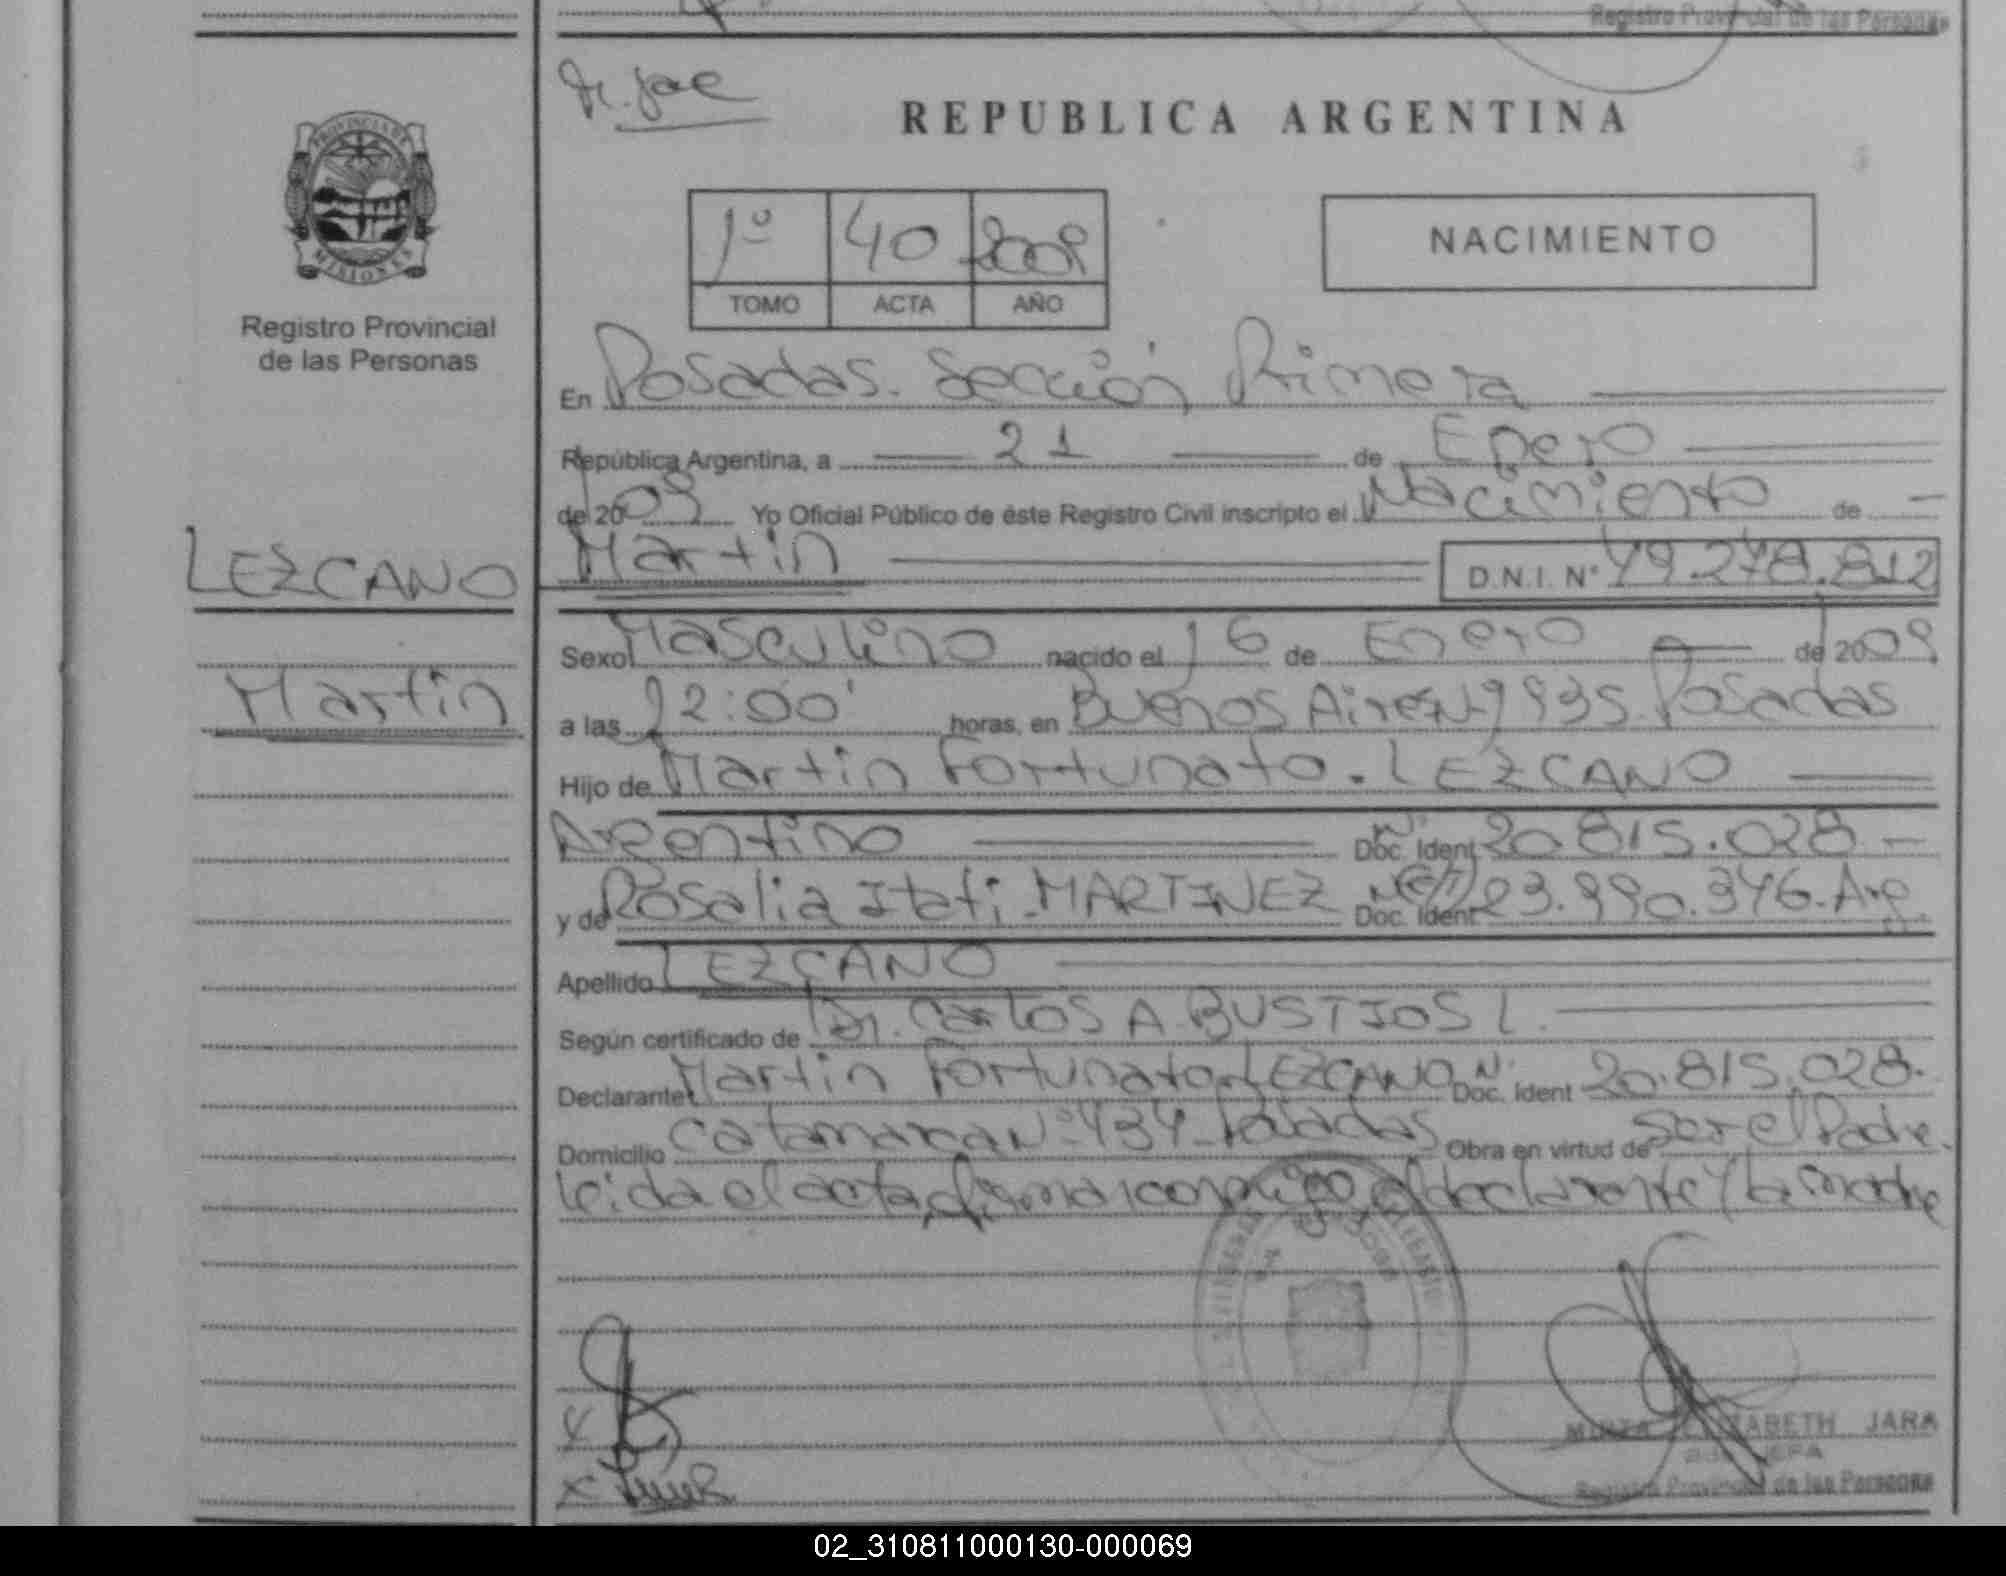 Registro Provincial de las Personas
REPUBLICA ARGENTINA
PROVINCIA DE
MISIONES
Registro Provincial
de las Personas
1º 40 2009
TOMO ACTA AÑO
NACIMIENTO
En Posadas. Sección Primera
República Argentina, a 21 de Enero
de 2009 Yo Oficial Público de éste Registro Civil inscripto el Nacimiento de
LEZCANO
Martin
D.N.I. Nº 49.278.812
Sexo Masculino nacido el 16 de Enero de 2009
Martin
a las 12:00 horas, en Buenos Aires Nº 1935 Posadas
Hijo de Martin Fortunato. LEZCANO
Argentino Nº Doc. Ident 20.815.028
y de Rosalia Itati. MARTINEZ Doc. Ident 23.990.346. Arg.
Apellido LEZCANO
Según certificado de Dr. Carlos A. BUSTIOS L.
Declarante Martin Fortunato. LEZCANO Nº Doc. Ident 20.815.028.
Domicilio Catamarca Nº 434 Posadas Obra en virtud de ser el Padre.
Leida el acta, firman conmigo el declarante y la madre
ELIZABETH JARA
Registro Provincial de las Personas
02_310811000130-000069